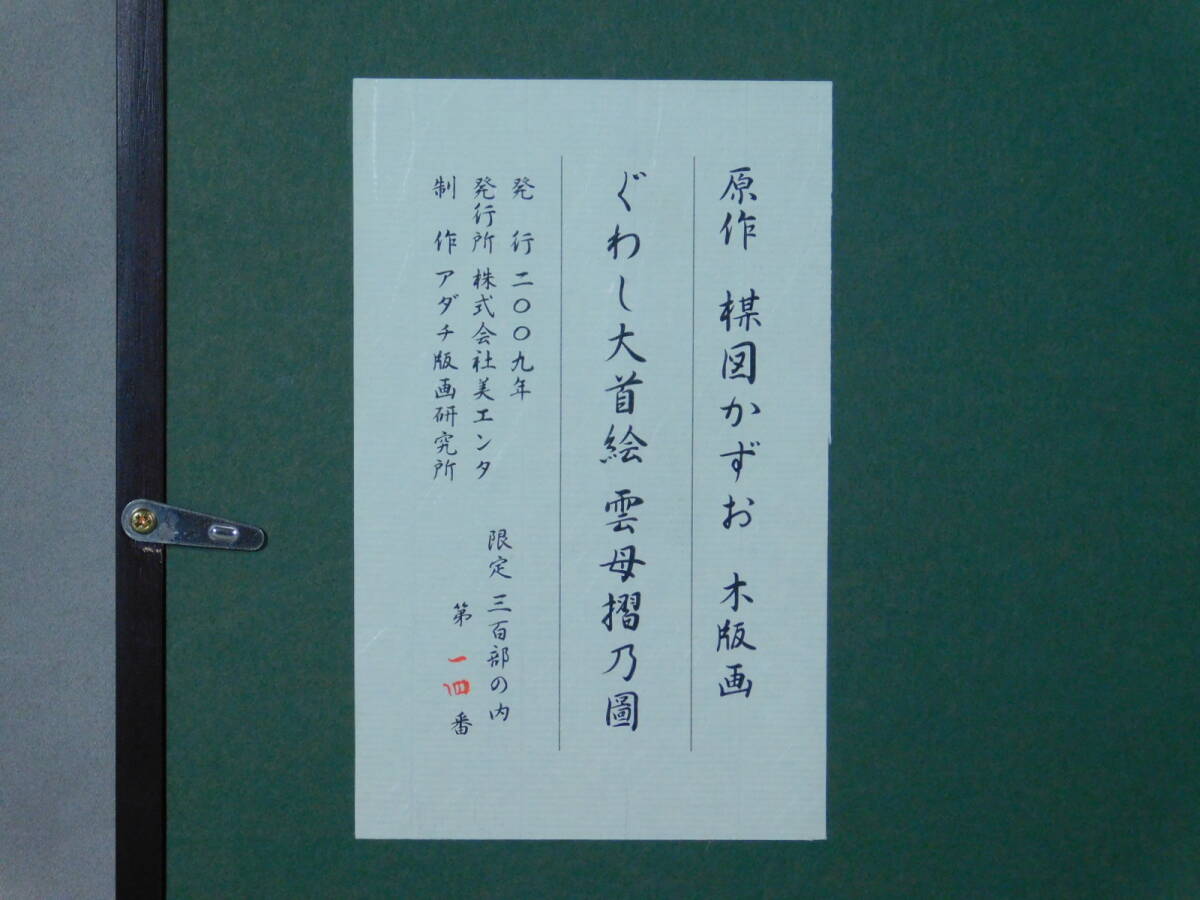 原作 楳図かずお 木版画
ぐわし大首絵 雲母摺乃圖
発行 二〇〇九年
発行所 株式会社美エンタ
制作 アダチ版画研究所
限定 三百部の内
第 一四 番